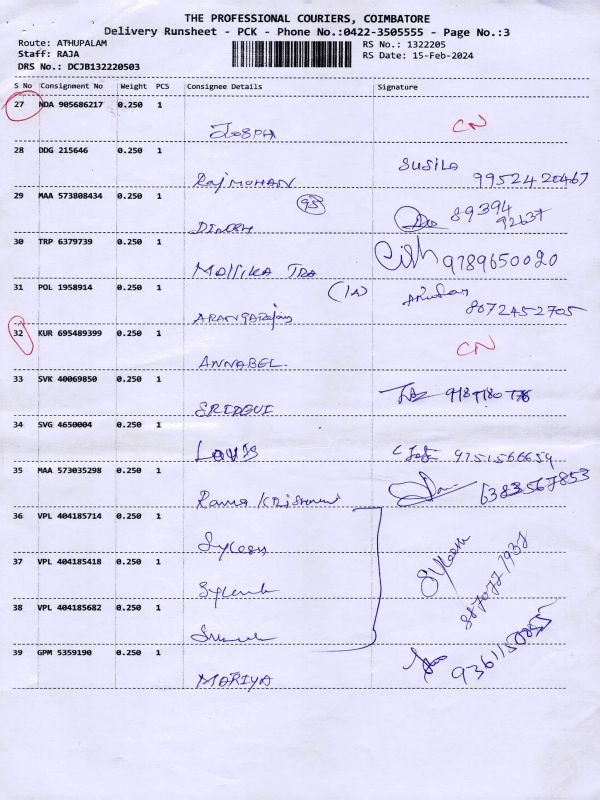 THE PROFESSIONAL COURIERS, COIMBATORE
Delivery Runsheet - PCK - Phone No.:0422-3505555 - Page No.:3
Route: ATHUPALAM
RS No.: 1322205
Staff: RAJA
RS Date: 15-Feb-2024
DRS No.: DCJB132220503
S No Consignment No Weight PCS Consignee Details Signature
27 NDA 905686217 0.250 1
JOSEPH CN
28 DDG 215646 0.250 1 SUSILA
RAJ MOHAN 9952420467
29 MAA 573808434 0.250 1 95 89394
DINESH 92637
30 TRP 6379739 0.250 1
MALLIKA TRA 9789650020
31 POL 1958914 0.250 1 (1A)
8072452705
32 KUR 695489399 0.250 1 CN
ANNABEL.
33 SVK 40069850 0.250 1
SRIDEVI
34 SVG 4650004 0.250 1
LOUIS 9751566659
35 MAA 573035298 0.250 1
Rama Krishnan 6383567853
36 VPL 404185714 0.250 1
37 VPL 404185418 0.250 1
38 VPL 404185682 0.250 1
39 GPM 5359190 0.250 1
MARIYA